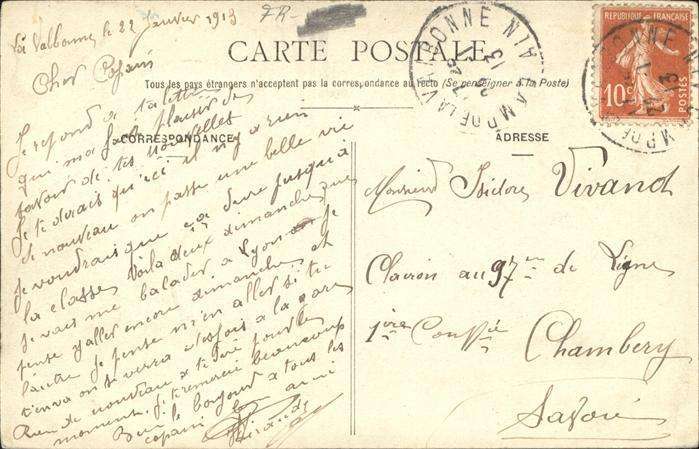 La Valbonne le 22 Janvier 1913
FR-
CARTE POSTALE
Tous les pays étrangers n'acceptent pas la correspondance au recto (Se renseigner à la Poste)
CORRESPONDANCE
Cher Copain
Je repond a ta lettre
qui ma fait plaisir de
savoir de tes nouvelles
Je te dirais qu'ici il n'y a rien
de nouveau on passe une belle vie
Je voudrais que ça dure jusqu'a
la classe. Voila deux dimanches que
je vais me balader a Lyon je
pense y aller encore dimanche et
l'autre je pense m'en aller si tu
t'en va on se verra a la gare
Rien de nouveau a te dire pour le
moment. Je remercie beaucoup
Bien le bonjour a tous les
copains
ami
ADRESSE
Monsieur Isidore Vivand
Clairon au 97me de Ligne
1ère Compie
Chambery
Savoie
REPUBLIQUE FRANÇAISE
10c
POSTES
CAMP DE LA VALBONNE AIN